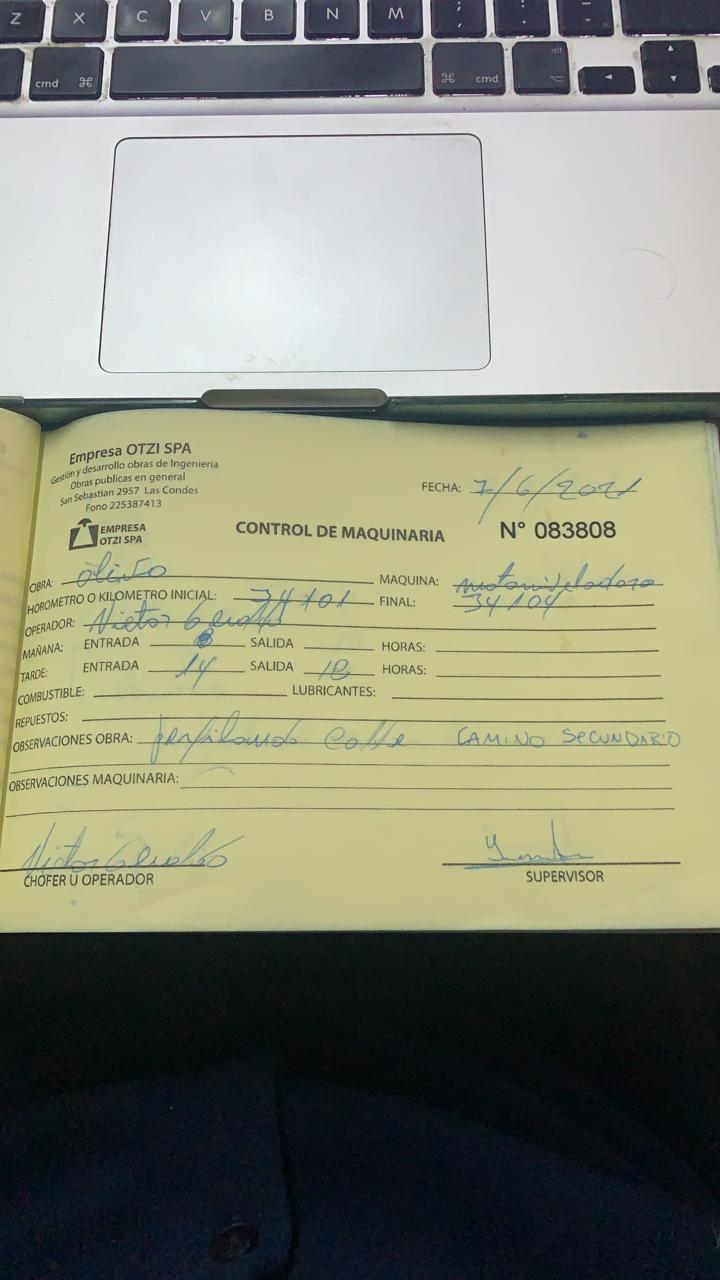 Z X C V B N M ; : -
cmd ⌘ ⌘ cmd alt ⌥ ◄ ▲ ▼
Empresa OTZI SPA
Gestión y desarrollo obras de Ingenieria
Obras publicas en general
San Sebastian 2957 Las Condes
Fono 225387413
FECHA: 7/6/2021
EMPRESA
OTZI SPA
CONTROL DE MAQUINARIA
N° 083808
OBRA: olivo MAQUINA: motoniveladora
HOROMETRO O KILOMETRO INICIAL: 34101 FINAL: 34104
OPERADOR:
MAÑANA: ENTRADA 8 SALIDA HORAS:
TARDE: ENTRADA 14 SALIDA 18 HORAS:
COMBUSTIBLE: LUBRICANTES:
REPUESTOS:
OBSERVACIONES OBRA: perfilando calle CAMINO SECUNDARIO
OBSERVACIONES MAQUINARIA:
CHOFER U OPERADOR
SUPERVISOR